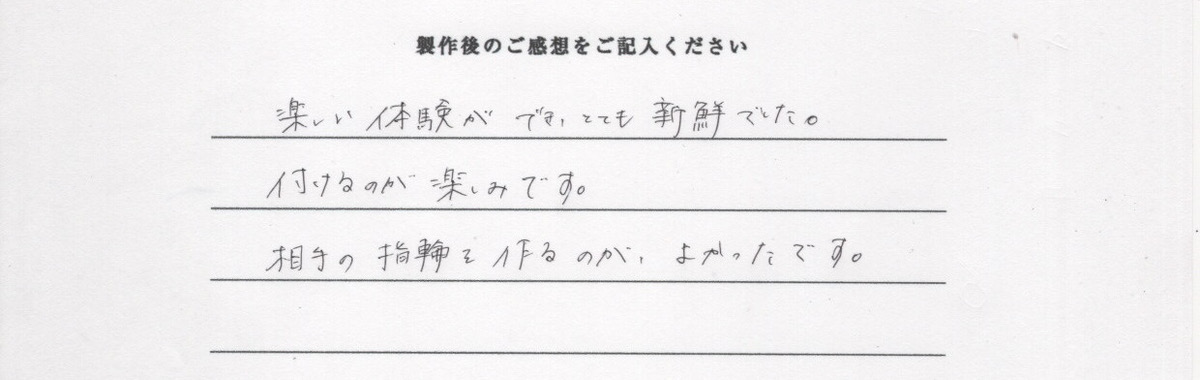 製作後のご感想をご記入ください
楽しい体験ができ、とても新鮮でした。
付けるのが楽しみです。
相手の指輪を作るのが、よかったです。